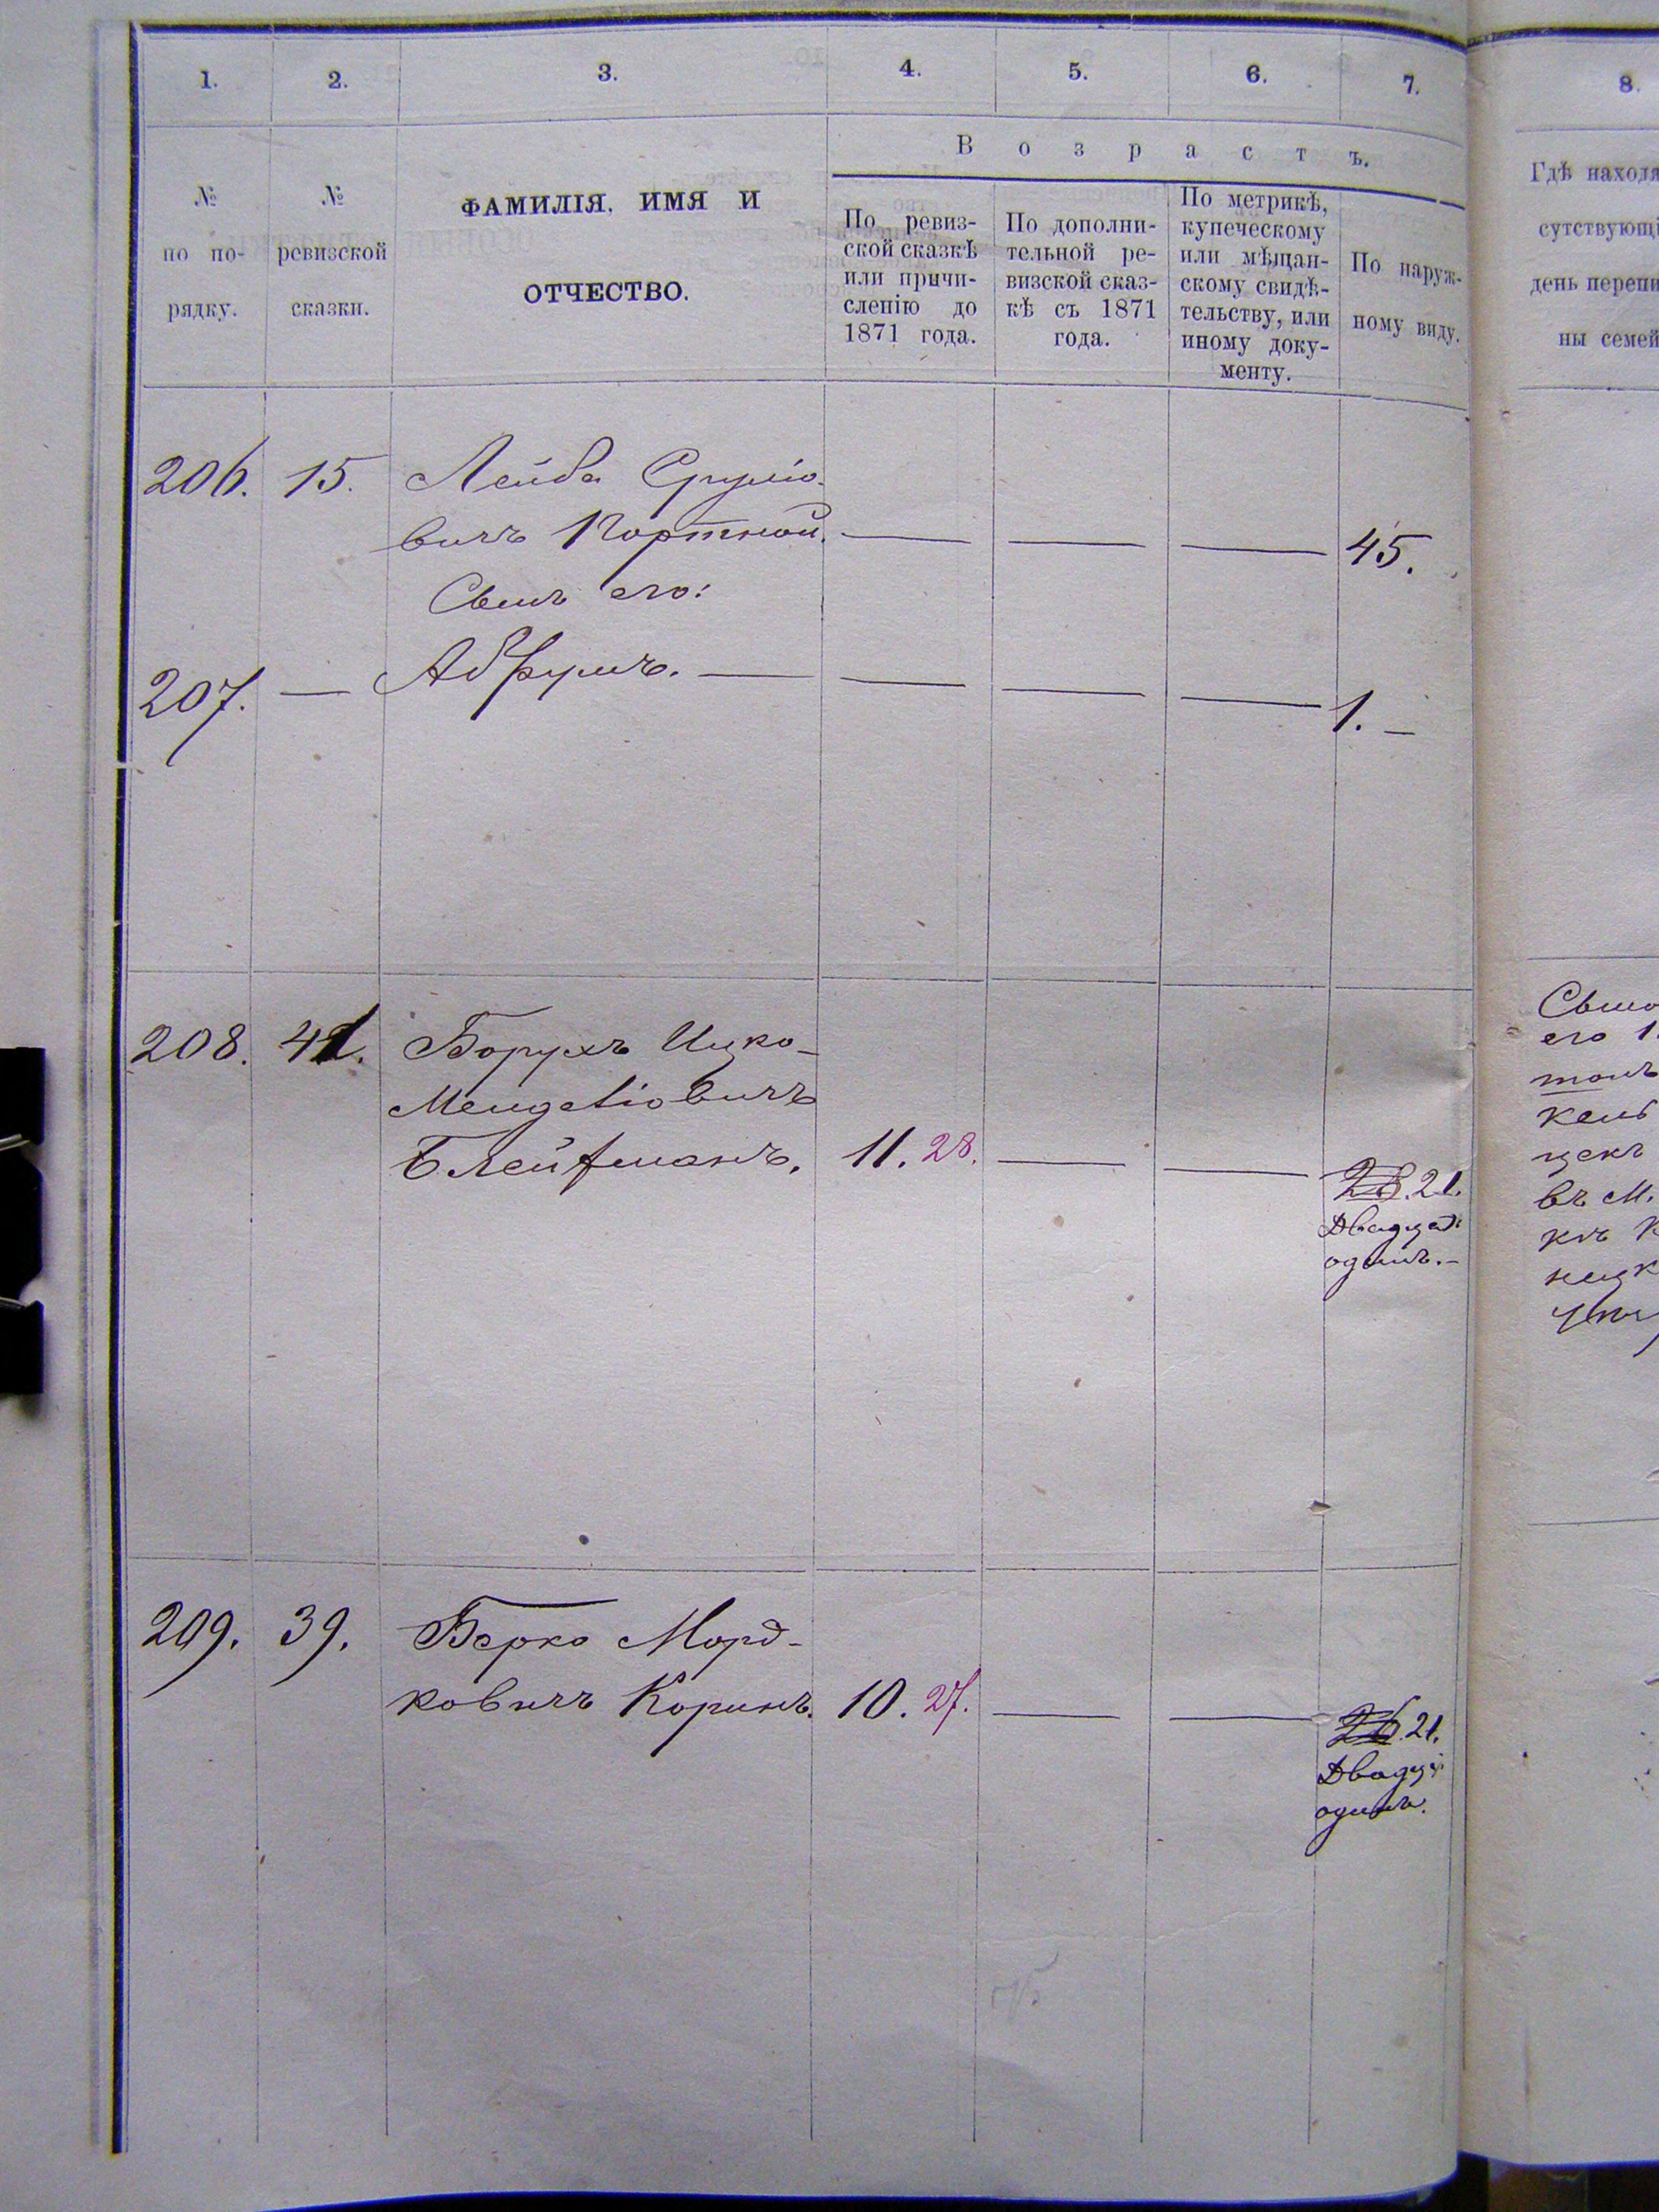 1. 2. 3. 4. 5. 6. 7. 8.
№ по по-
рядку.
№ ревизской
сказки.
ФАМИЛІЯ, ИМЯ И
ОТЧЕСТВО.
Возрастъ.
По ревиз-
ской сказкѣ
или причи-
сленію до
1871 года.
По дополни-
тельной ре-
визской сказ-
кѣ съ 1871
года.
По метрикѣ,
купеческому
или мѣщан-
скому свидѣ-
тельству, или
иному доку-
менту.
По наруж-
ному виду.
Гдѣ находя
сутствующі
день перепи
ны семей
206. 15. Лейба Срулiо-
вичъ Портной. — — — 45.
Сынъ его:
207. — Абрумъ. — — — — 1. —
208. 41. Борухъ Ицко-
Менделiовичъ
Блейхманъ. 11. 28. — — 28. 21.
Двадцать
одинъ. —
209. 39. Берко Морд-
ковичъ Коринъ. 10. 27. — — 26. 21.
Двадца
одинъ.
его 1.
въ М.